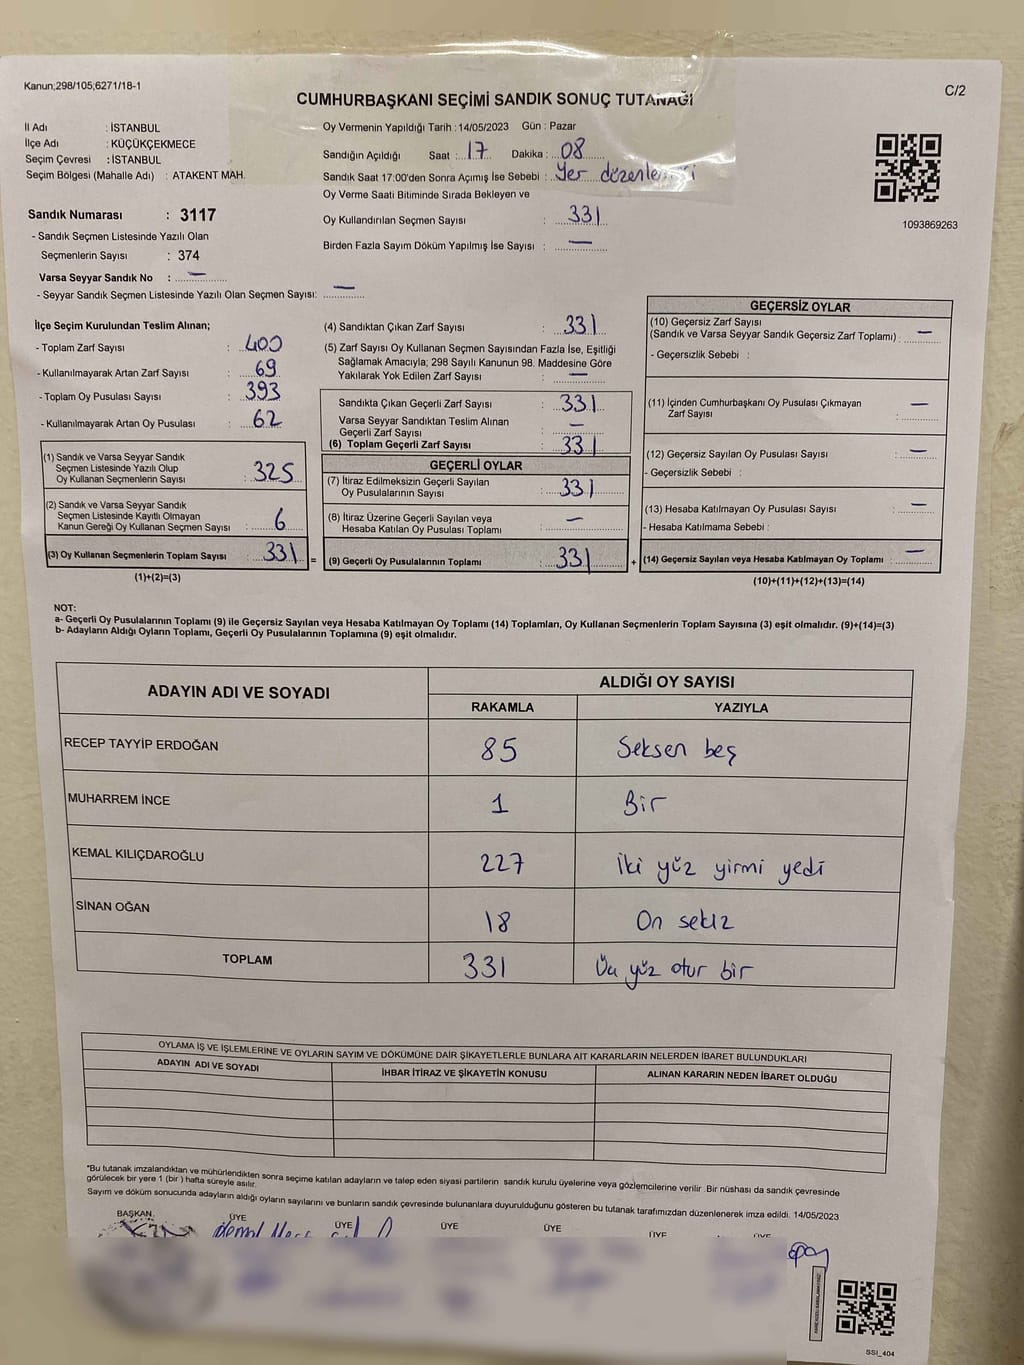 Kanun;298/105;6271/18-1
C/2
CUMHURBAŞKANI SEÇİMİ SANDIK SONUÇ TUTANAĞI
İl Adı : İSTANBUL
İlçe Adı : KÜÇÜKÇEKMECE
Seçim Çevresi : İSTANBUL
Seçim Bölgesi (Mahalle Adı) : ATAKENT MAH.
Oy Vermenin Yapıldığı Tarih : 14/05/2023 Gün : Pazar
Sandığın Açıldığı Saat : 17 Dakika : 08
Sandık Saat 17:00'den Sonra Açımış İse Sebebi : Yer
Oy Verme Saati Bitiminde Sırada Bekleyen ve
Oy Kullandırılan Seçmen Sayısı : 331
Birden Fazla Sayım Döküm Yapılmış İse Sayısı : —
1093869263
Sandık Numarası : 3117
- Sandık Seçmen Listesinde Yazılı Olan
Seçmenlerin Sayısı : 374
Varsa Seyyar Sandık No : —
- Seyyar Sandık Seçmen Listesinde Yazılı Olan Seçmen Sayısı: —
İlçe Seçim Kurulundan Teslim Alınan;
- Toplam Zarf Sayısı : 400
- Kullanılmayarak Artan Zarf Sayısı : 69
- Toplam Oy Pusulası Sayısı : 393
- Kullanılmayarak Artan Oy Pusulası : 62
(1) Sandık ve Varsa Seyyar Sandık
Seçmen Listesinde Yazılı Olup
Oy Kullanan Seçmenlerin Sayısı : 325
(2) Sandık ve Varsa Seyyar Sandık
Seçmen Listesinde Kayıtlı Olmayan
Kanun Gereği Oy Kullanan Seçmen Sayısı : 6
(3) Oy Kullanan Seçmenlerin Toplam Sayısı : 331 =
(1)+(2)=(3)
(4) Sandıktan Çıkan Zarf Sayısı : 331
(5) Zarf Sayısı Oy Kullanan Seçmen Sayısından Fazla İse, Eşitliği
Sağlamak Amacıyla; 298 Sayılı Kanunun 98. Maddesine Göre
Yakılarak Yok Edilen Zarf Sayısı : —
Sandıkta Çıkan Geçerli Zarf Sayısı : 331
Varsa Seyyar Sandıktan Teslim Alınan
Geçerli Zarf Sayısı : —
(6) Toplam Geçerli Zarf Sayısı : 331
GEÇERLİ OYLAR
(7) İtiraz Edilmeksizin Geçerli Sayılan
Oy Pusulalarının Sayısı : 331
(8) İtiraz Üzerine Geçerli Sayılan veya
Hesaba Katılan Oy Pusulası Toplamı : —
(9) Geçerli Oy Pusulalarının Toplamı : 331 +
GEÇERSİZ OYLAR
(10) Geçersiz Zarf Sayısı
(Sandık ve Varsa Seyyar Sandık Geçersiz Zarf Toplamı) : —
- Geçersizlik Sebebi :
(11) İçinden Cumhurbaşkanı Oy Pusulası Çıkmayan
Zarf Sayısı : —
(12) Geçersiz Sayılan Oy Pusulası Sayısı : —
- Geçersizlik Sebebi :
(13) Hesaba Katılmayan Oy Pusulası Sayısı : —
- Hesaba Katılmama Sebebi :
(14) Geçersiz Sayılan veya Hesaba Katılmayan Oy Toplamı : —
(10)+(11)+(12)+(13)=(14)
NOT:
a- Geçerli Oy Pusulalarının Toplamı (9) ile Geçersiz Sayılan veya Hesaba Katılmayan Oy Toplamı (14) Toplamları, Oy Kullanan Seçmenlerin Toplam Sayısına (3) eşit olmalıdır. (9)+(14)=(3)
b- Adayların Aldığı Oyların Toplamı, Geçerli Oy Pusulalarının Toplamına (9) eşit olmalıdır.
ADAYIN ADI VE SOYADI ALDIĞI OY SAYISI
RAKAMLA YAZIYLA
RECEP TAYYİP ERDOĞAN 85 Seksen beş
MUHARREM İNCE 1 Bir
KEMAL KILIÇDAROĞLU 227 İki yüz yirmi yedi
SİNAN OĞAN 18 On sekiz
TOPLAM 331 Üç yüz otur bir
OYLAMA İŞ VE İŞLEMLERİNE VE OYLARIN SAYIM VE DÖKÜMÜNE DAİR ŞİKAYETLERLE BUNLARA AİT KARARLARIN NELERDEN İBARET BULUNDUKLARI
ADAYIN ADI VE SOYADI İHBAR İTİRAZ VE ŞİKAYETİN KONUSU ALINAN KARARIN NEDEN İBARET OLDUĞU
*Bu tutanak imzalandıktan ve mühürlendikten sonra seçime katılan adayların ve talep eden siyasi partilerin sandık kurulu üyelerine veya gözlemcilerine verilir. Bir nüshası da sandık çevresinde
görülecek bir yere 1 (bir) hafta süreyle asılır.
Sayım ve döküm sonucunda adayların aldığı oyların sayılarını ve bunların sandık çevresinde bulunanlara duyurulduğunu gösteren bu tutanak tarafımızdan düzenlenerek imza edildi. 14/05/2023
BAŞKAN ÜYE ÜYE ÜYE ÜYE ÜYE ÜYE
SSI_404